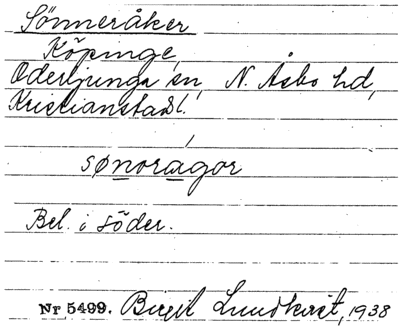 Sönneråker
Köpinge,
Oderljunga sn, N. Åsbo hd,
Kristianstads l.
sønorágor
Bel. i söder.
Nr 5499. Birgit Lundkvist, 1938